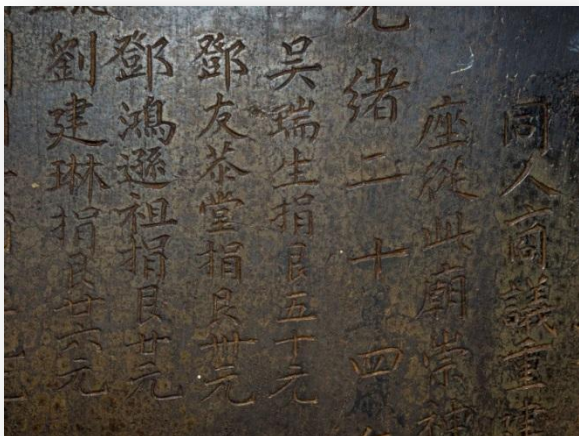 同人商議重建
座從此廟崇神
光緒二十四
吴瑞生捐艮五十元
鄧友恭堂捐艮卅元
鄧鴻遜祖捐艮廿元
劉建琳捐艮廿六元